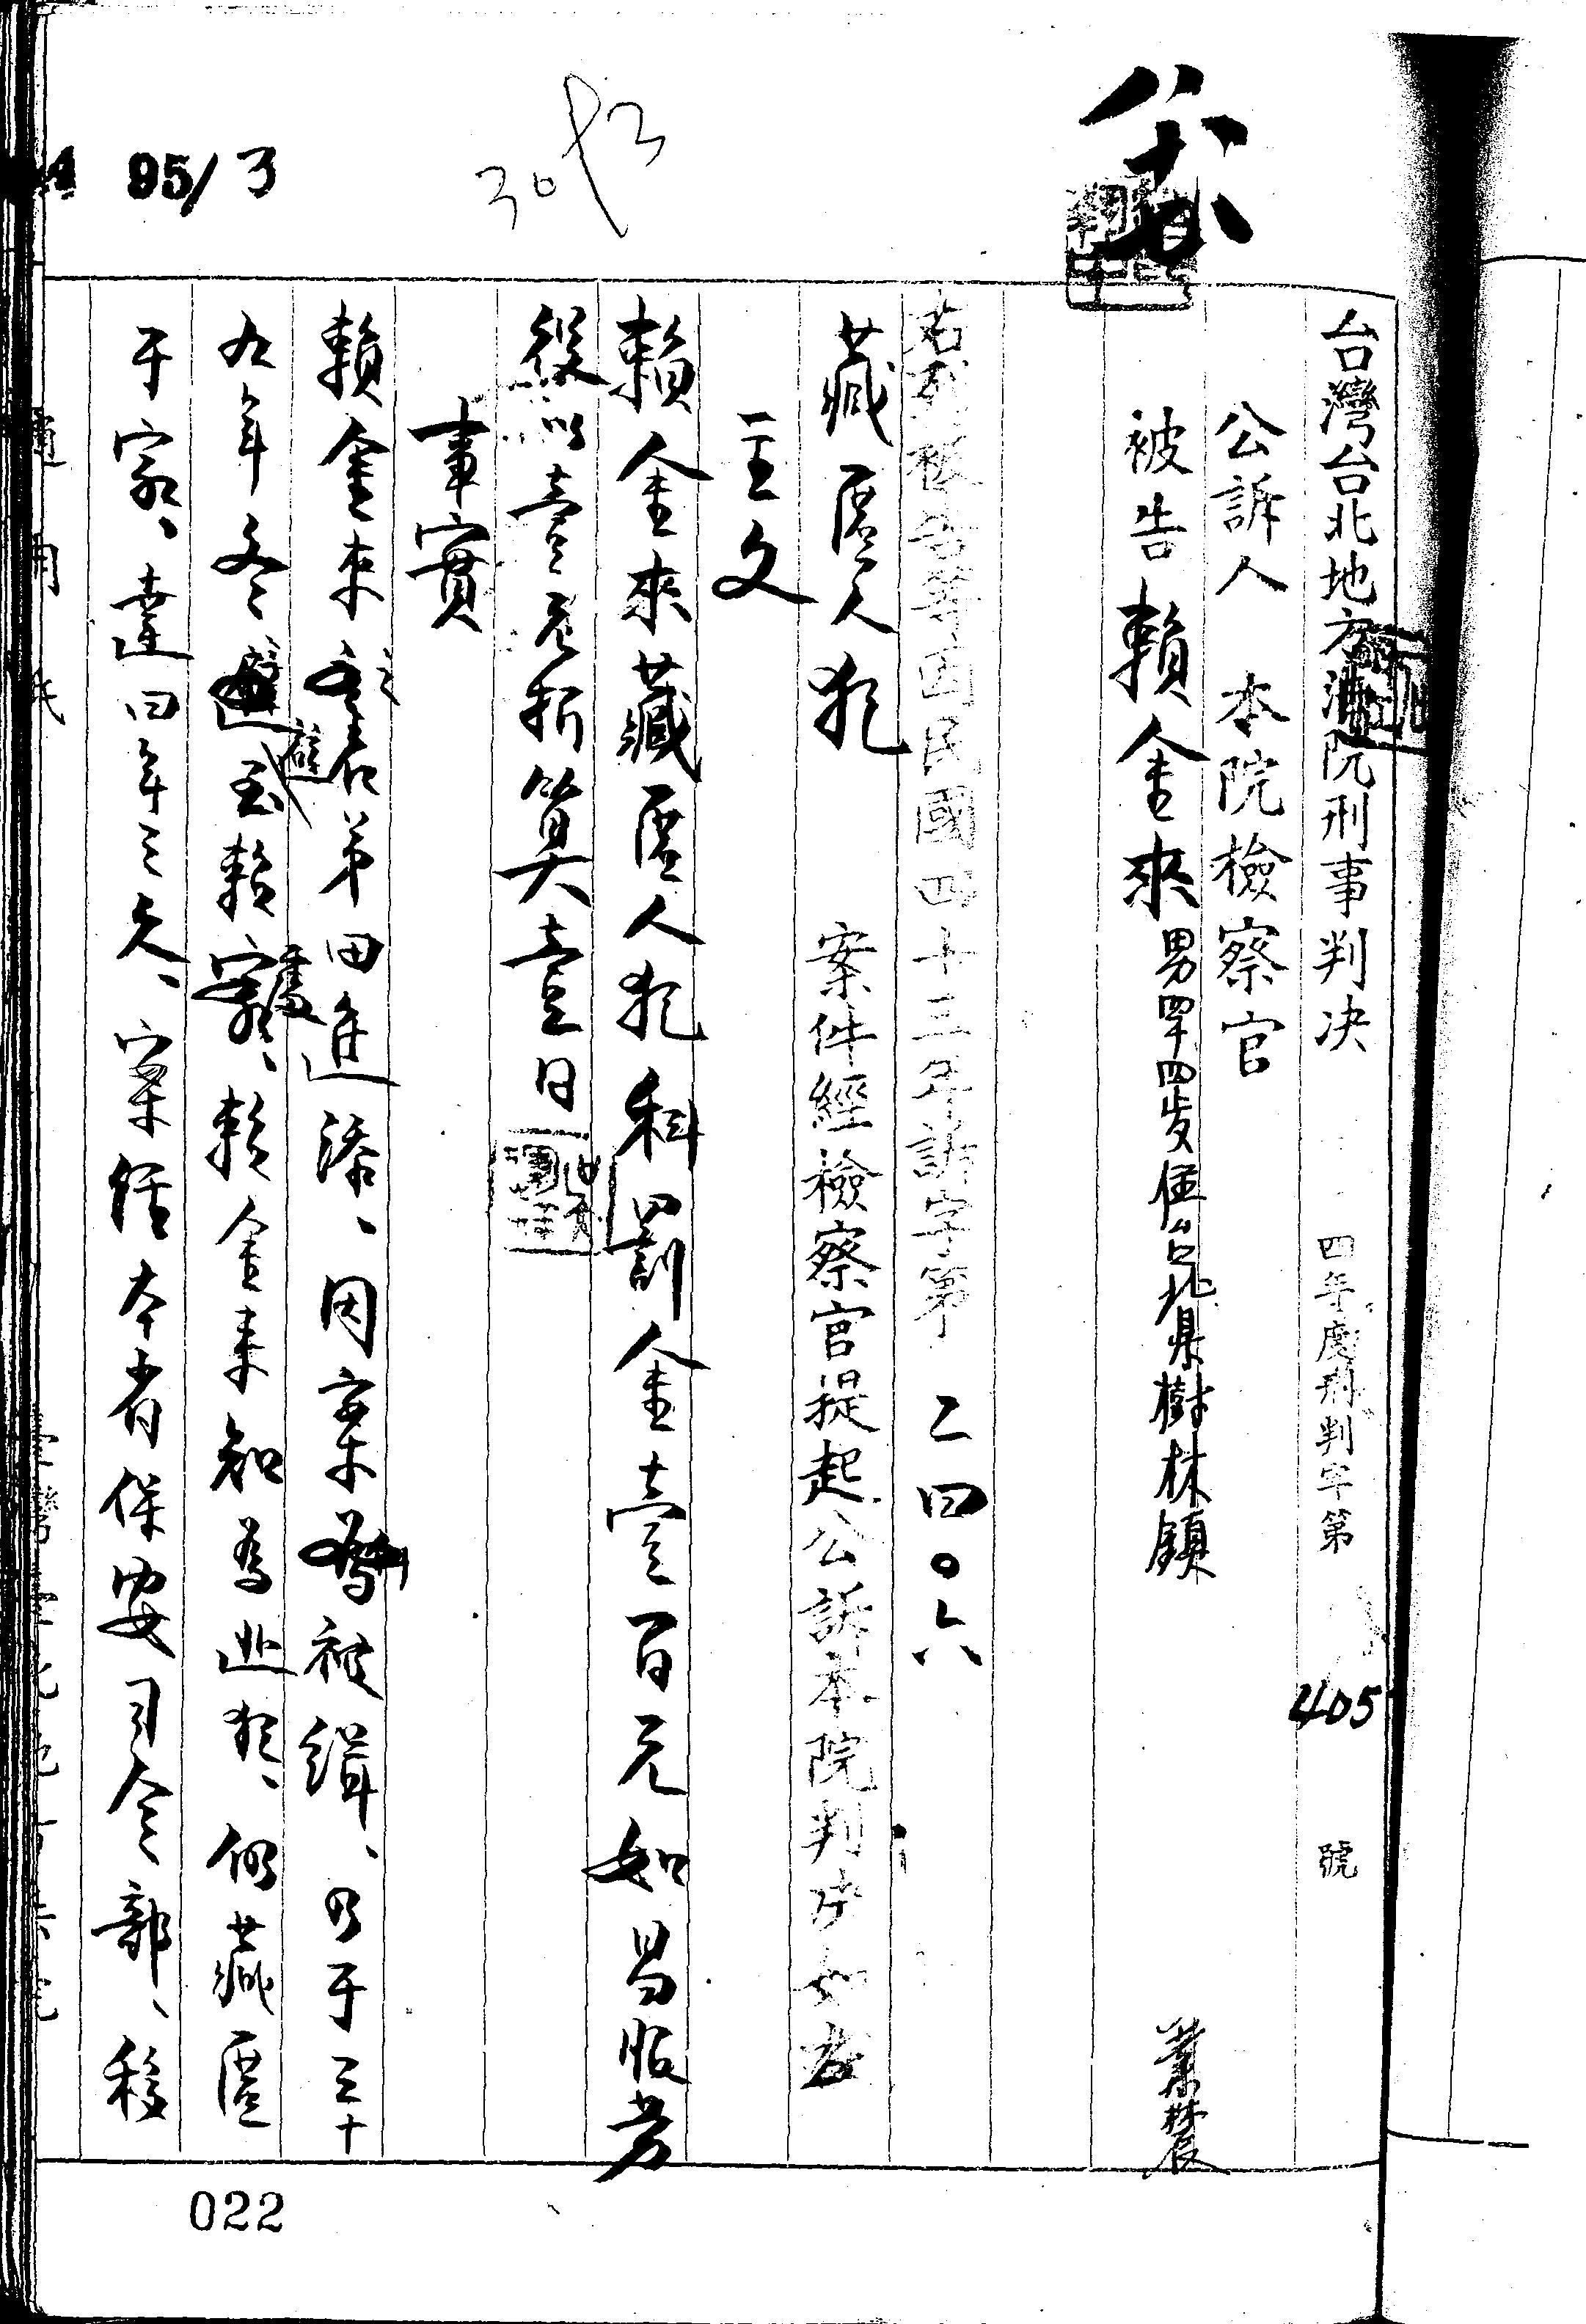 95/3
台灣台北地方法院刑事判决 四年度刑判字第 405 號
公訴人 本院檢察官
被告 賴金來 男 四四歲 住台北県樹林鎮 業農
右列被告等因民國四十三年訴字第 二四〇六
藏匿人犯 案件經檢察官提起公訴本院判决如左
主文
賴金來藏匿人犯科罰金壹百元如易服劳
役以壹元折算壹日
事實
賴金來 弟田進添、因案被緝、乃于三十
九年冬避至賴處、賴金来知為逃犯、仍藏匿
于家、達四年之久、案經本省保安司令部、移
022